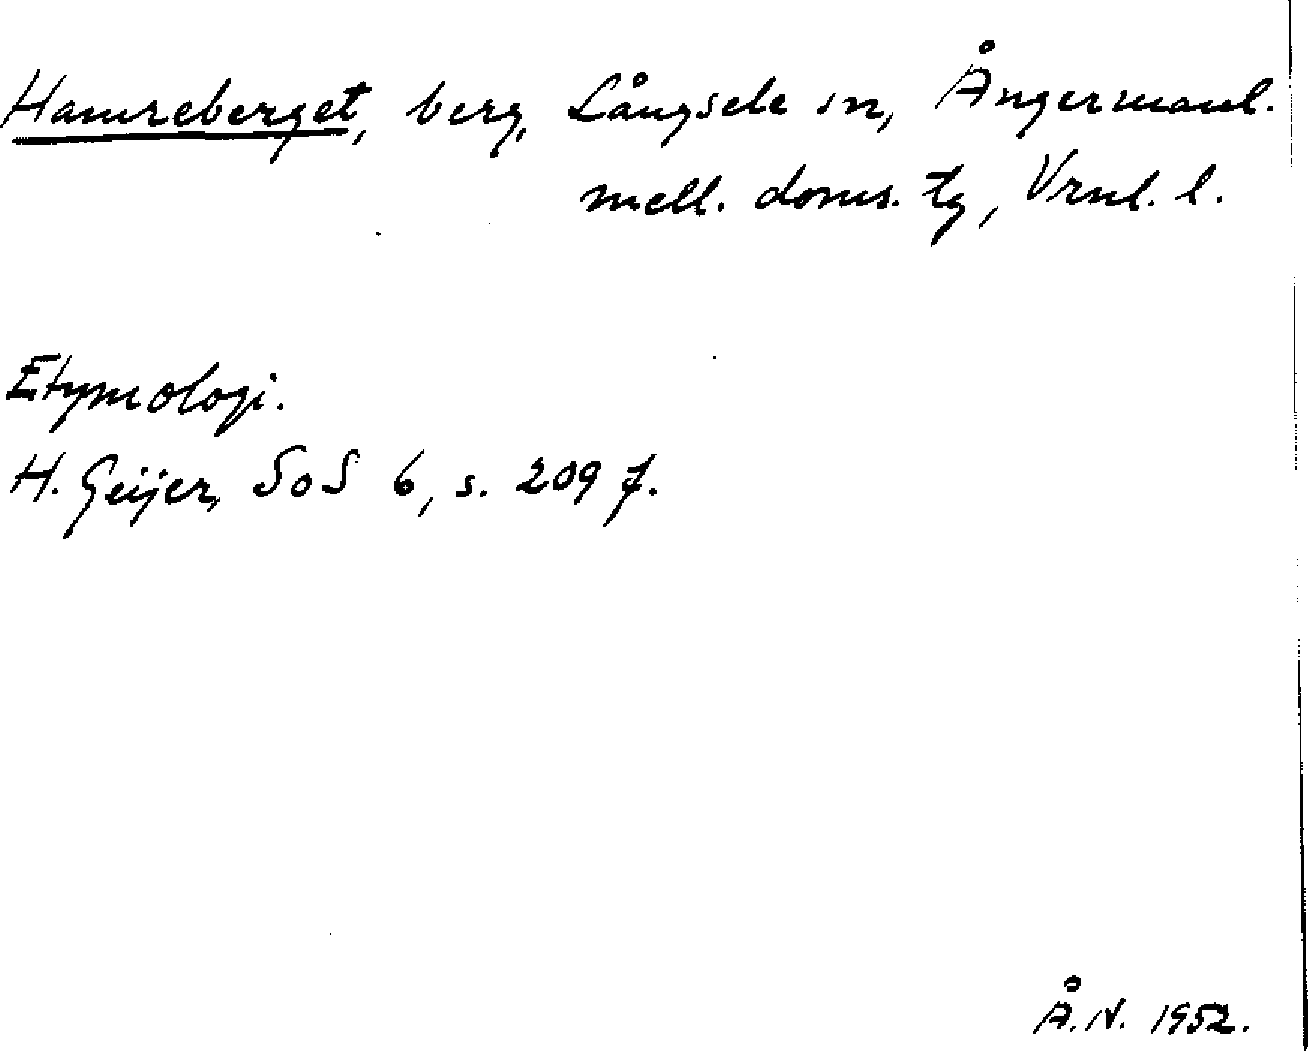 Hamreberget, berg, Långsele sn, Ångermanl.
mell. doms. tg, Vrnl. l.
Etymologi.
H. Geijer, SoS 6, s. 209 f.
Å.N. 1952.